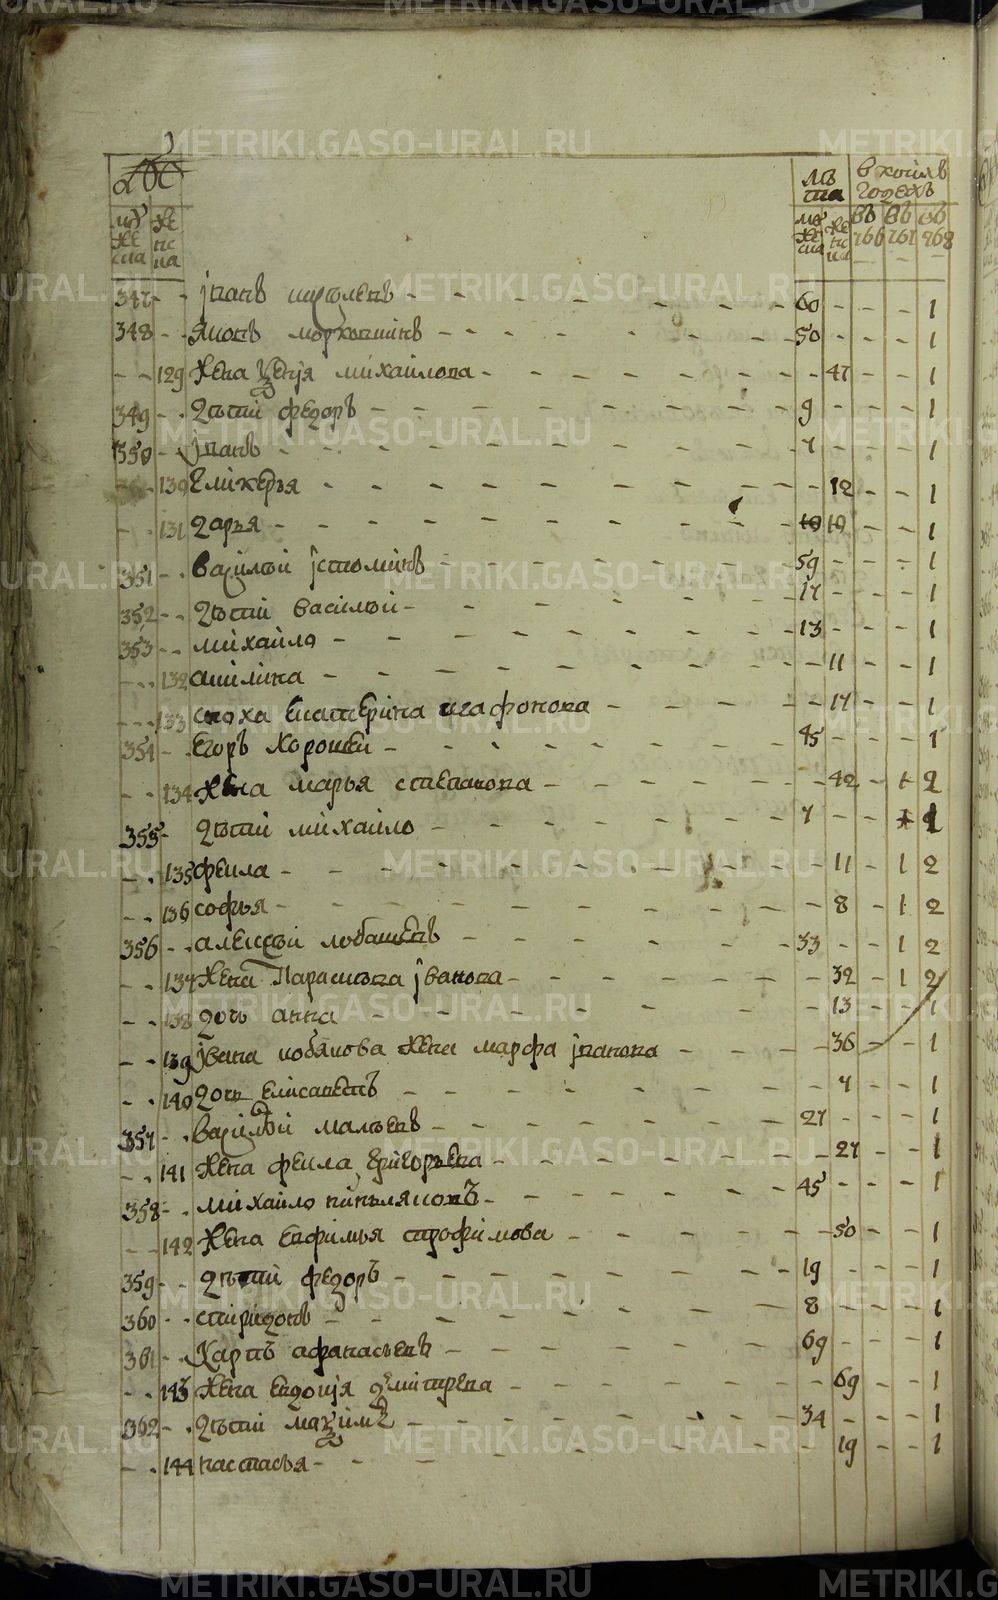 METRIKI.GASO-URAL.RU
лѣта
в коихъ годехъ
муже женс
муже ска женс ка въ 766 въ 767 въ 768
347 - - Iванъ - 60 - - - 1
348 - - Яковъ - 50 - - - 1
- - 129 жена Ксенiя михайлова - - 47 - - 1
349 - - дѣти федоръ - 9 - - - 1
350 - - Iванъ - 7 - - - 1
- - 130 Гликерья - - 12 - - 1
- - 131 дарья - - 10 - - 1
351 - - василей Iстоминъ - 59 - - - 1
352 - - дѣти василей - 17 - - - 1
353 - - михайло - 13 - - - 1
- - 132 акилина - - 11 - - 1
- - 133 сноха Екатерина агафонова - - 17 - - 1
354 - - Егоръ хорошей - 45 - - - 1
- - 134 жена марья степанова - - 42 - 1 2
355 - дѣти михайло - 7 - - 1
- - 135 фекла - - 11 - 1 2
- - 136 софья - - 8 - 1 2
356 - - алексѣй лобашевъ - 33 - - 1 2
- - 137 жена Парасковья Iванова - - 32 - 1 2
- - 138 дочь анна - - 13 - - 1
- - 139 Iвана кобякова жена марфа Iванова - - 36 - - 1
- - 140 дочь Елисаветъ - - 7 - - 1
357 - - василей малѣевъ - 27 - - - 1
- - 141 жена фекла григорьева - - 27 - - 1
358 - - михайло - 45 - - - 1
- - 142 жена Евфимья трофимова - - 50 - - 1
359 - - дѣти федоръ - 19 - - - 1
360 - - спиридонъ - 8 - - - 1
361 - - Карпъ афанасьевъ - 69 - - - 1
- - 143 жена Евдокiя дмитрева - - 69 - - 1
362 - - дѣти максимъ - 34 - - - 1
- - 144 настасья - - 19 - - 1